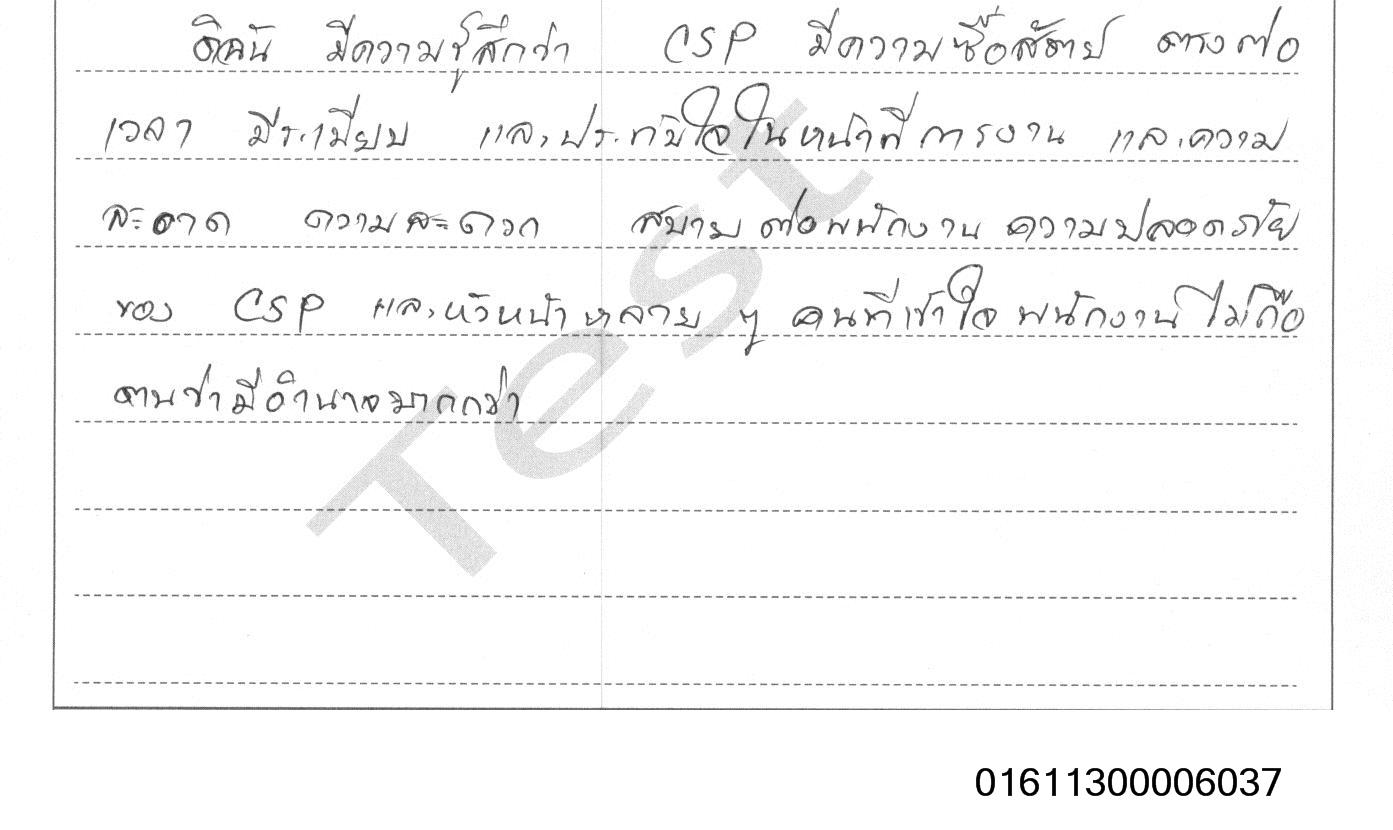 ดิฉัน มีความรู้สึกว่า CSP มีความซื่อสัตย์ ตรงต่อ
เวลา มีระเบียบ และประทับใจในหน้าที่การงาน และความ
สะอาด ความสะดวก สบาย ต่อพนักงาน ความปลอดภัย
ของ CSP และหัวหน้าหลาย ๆ คนที่เข้าใจ พนักงาน ไม่ถือ
ตนว่ามีอำนาจมากกว่า
Test
01611300006037